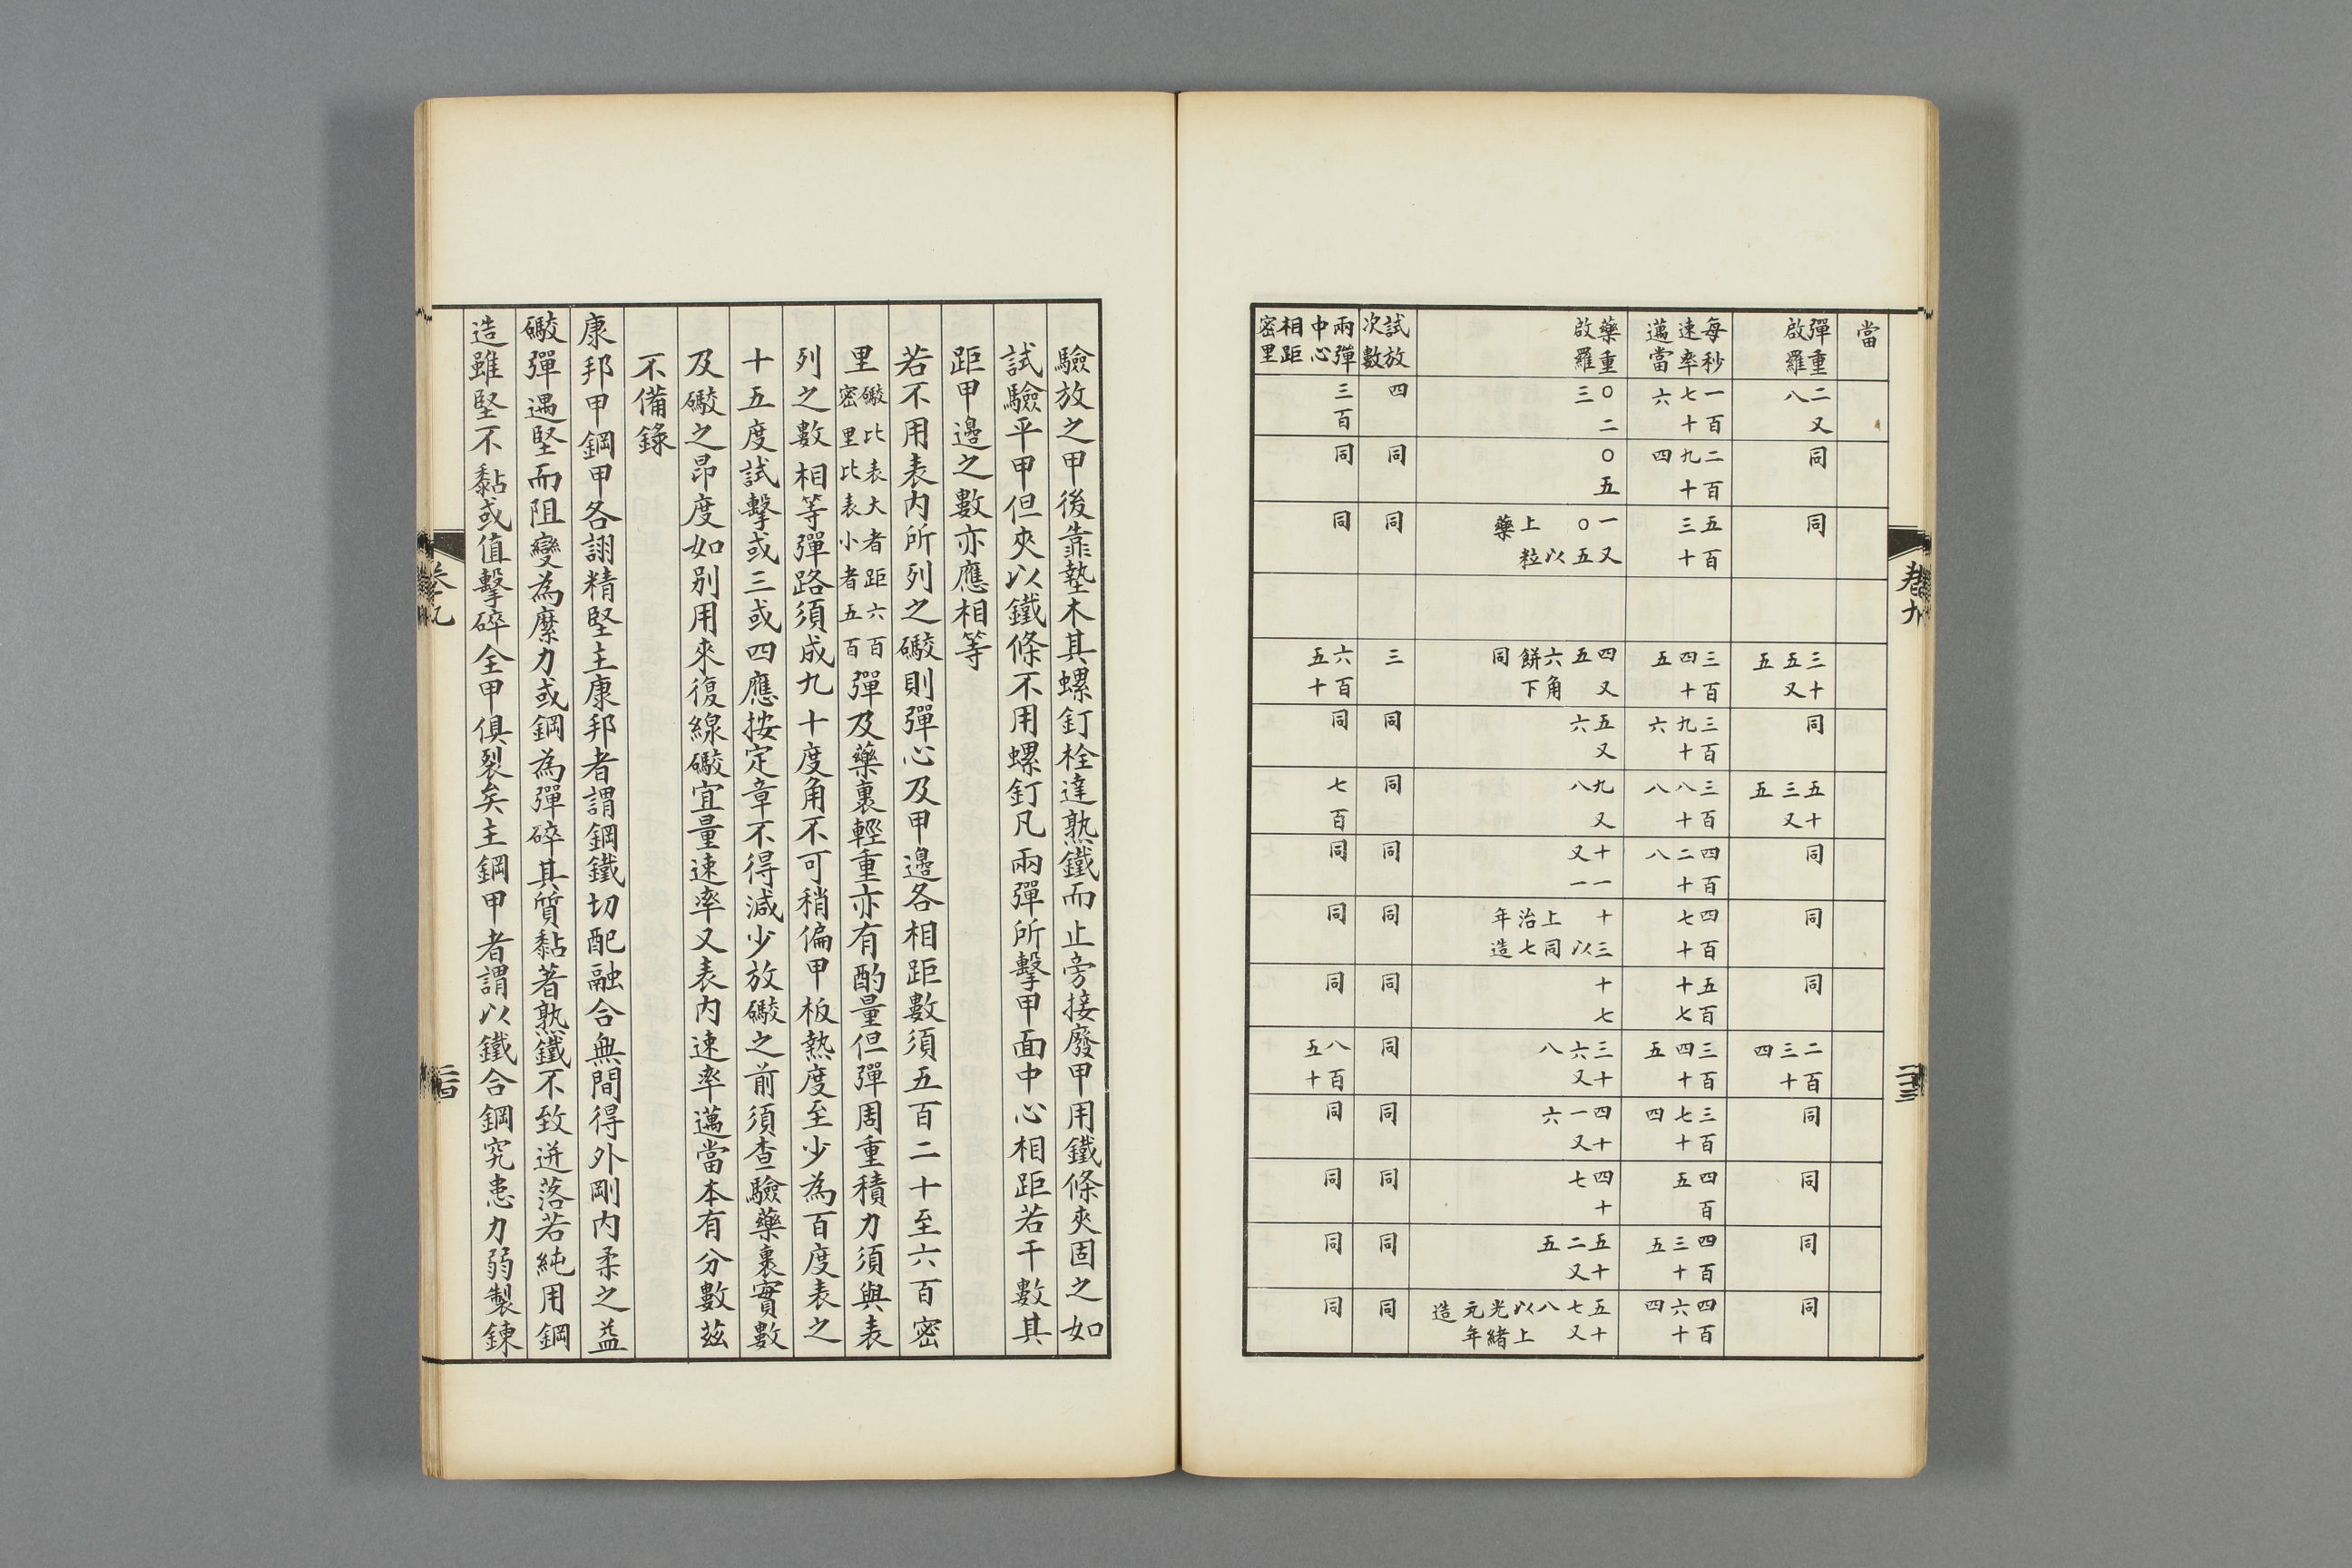 卷九
二十三
當
彈重啟羅 二又八 同 同 三十五又五 同 五十三又五 同 同 同 二百三十四 同 同 同 同
每秒速率邁當 一百七十六 二百九十四 五百三十 三百四十五 三百九十六 三百八十八 四百二十八 四百七十 五百十七 三百四十五 三百七十四 四百五 四百三十五 四百六十四
藥重啟羅 〇二三 〇五 一又〇五以上粒藥 四又五六角餅下同 五又六 九又八 十一又一 十三以上同治七年造 十七 三十六又八 四十一又六 四十七 五十二又五 五十七又八以上光緒元年造
試放次數 四 同 同 三 同 同 同 同 同 同 同 同 同 同
兩彈中心相距密里 三百 同 同 六百五十 同 七百 同 同 同 八百五十 同 同 同 同
驗放之甲後靠墊木其螺釘栓達熟鐵而止旁接廢甲用鐵條夾固之如
試驗平甲但夾以鐵條不用螺釘凡兩彈所擊甲面中心相距若干數其
距甲邊之數亦應相等
若不用表內所列之礮則彈心及甲邊各相距數須五百二十至六百密
里礮比表大者距六百密里比表小者五百彈及藥裹輕重亦有酌量但彈周重積力須與表
列之數相等彈路須成九十度角不可稍偏甲板熱度至少為百度表之
十五度試擊或三或四應按定章不得減少放礮之前須查驗藥裹實數
及礮之昂度如別用來復線礮宜量速率又表內速率邁當本有分數茲
不備錄
康邦甲鋼甲各詡精堅主康邦者謂鋼鐵切配融合無間得外剛內柔之益
礮彈遇堅而阻變為縻力或鋼為彈碎其質黏著熟鐵不致迸落若純用鋼
造雖堅不黏或值擊碎全甲俱裂矣主鋼甲者謂以鐵合鋼究患力弱製鍊
卷九
二十四